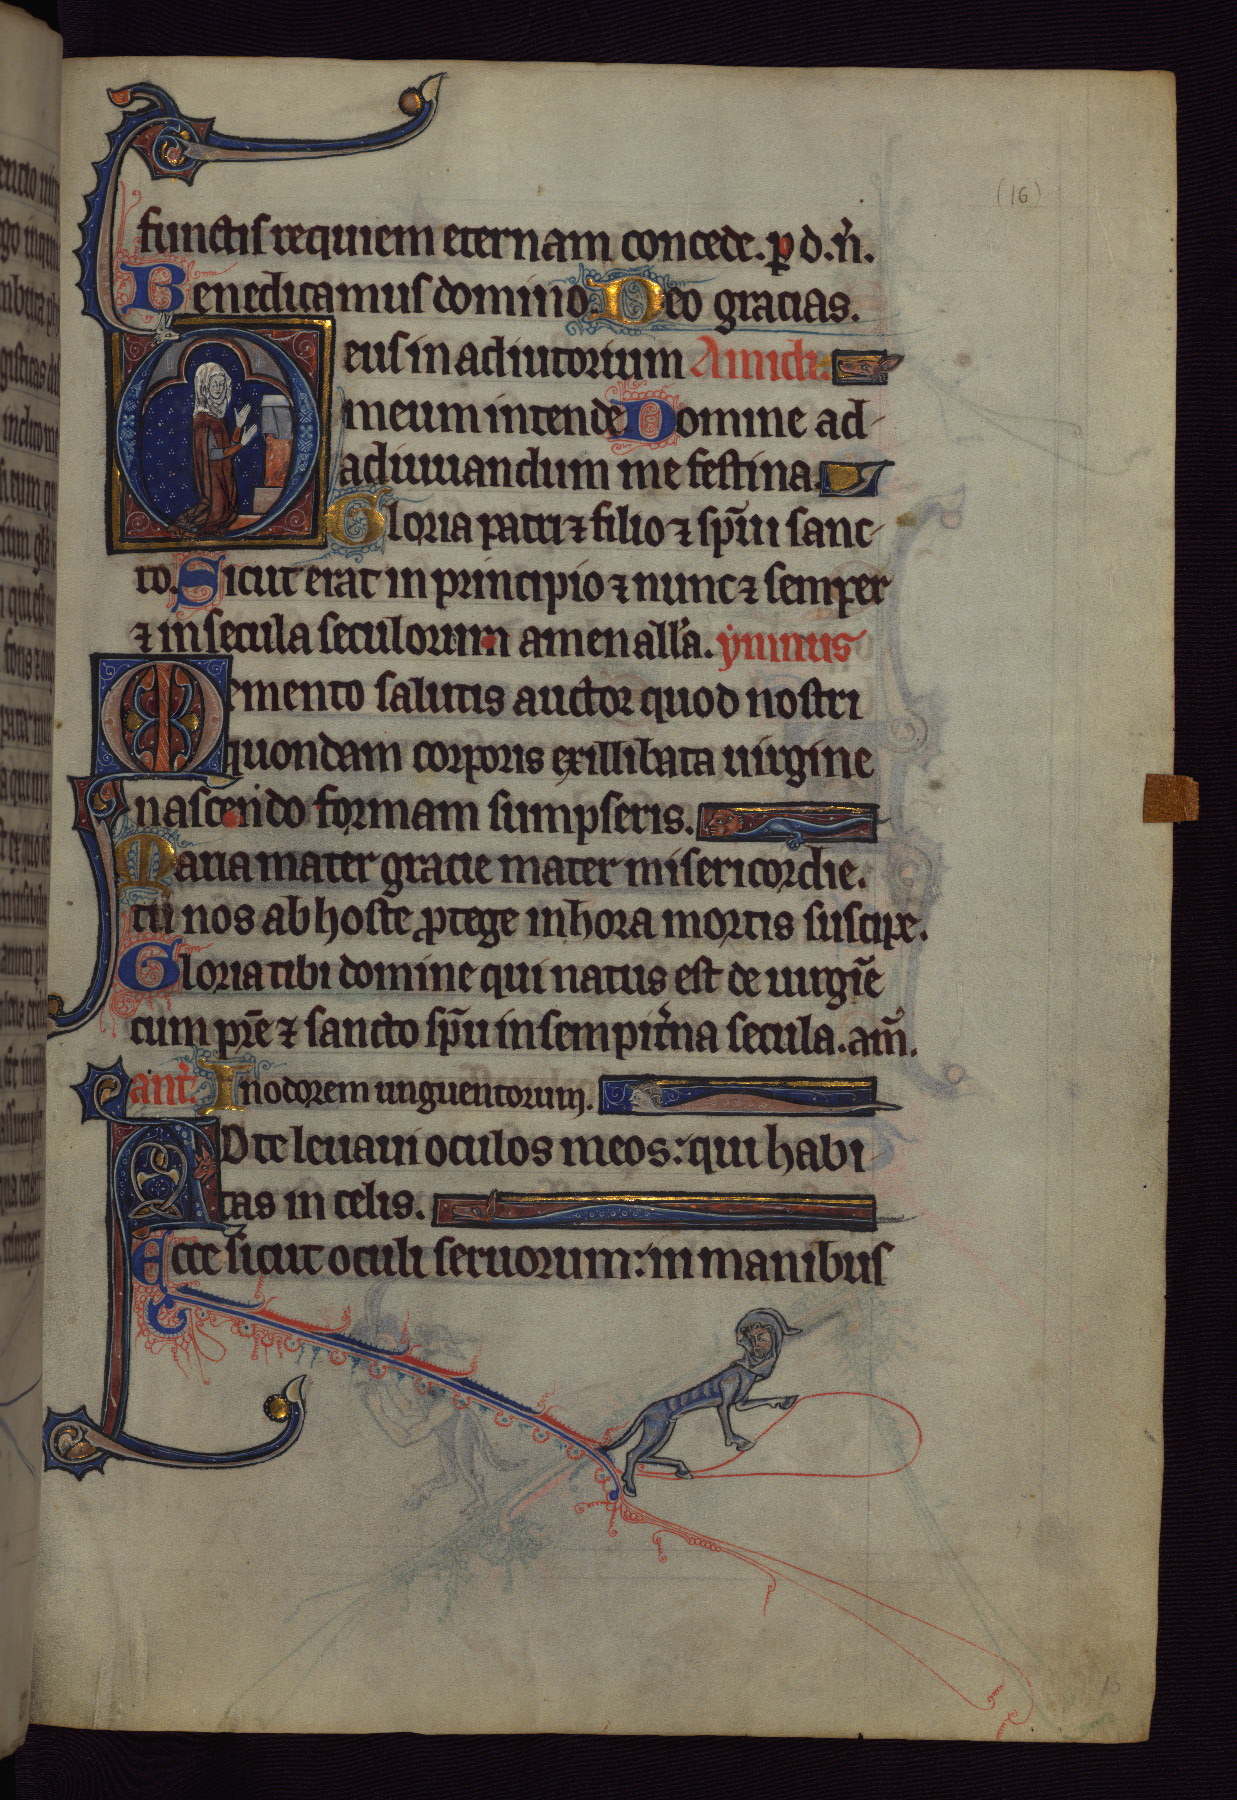 (16)
functis requiem eternam concede. ꝑ d. n̄.
Benedicamus domino. Deo gracias.
Deus in adiutorium A midi.
meum intende Domine ad
adiuuandum me festina
Gloria patri ⁊ filio ⁊ sp̄ui sanc
to. Sicut erat in principio ⁊ nunc ⁊ semper
⁊ in secula seculorum amen all'a. ymnus
Memento salutis auctor quod nostri
quondam corporis ex illibata uirgine
nascendo formam sumpseris.
Maria mater gracie mater misericordie.
tu nos ab hoste ꝓtege in hora mortis suscipe.
Gloria tibi domine qui natus est de uirgīe
cum pr̄e ⁊ sancto sp̄u in sempit'na secula. am̄.
ant'. In odorem unguentorum.
AD te leuaui oculos meos: qui habi
tas in celis.
Ecce sicut oculi seruorum: in manibus
15